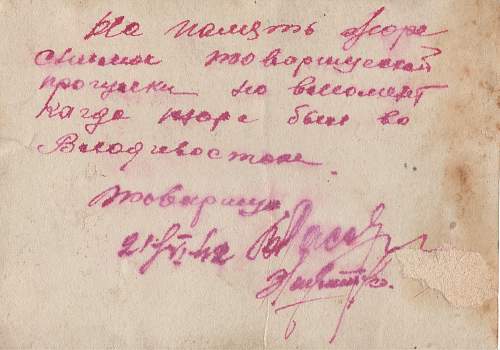 На память Жоре
снимок товарищеской
прогулки на велосипед
Когда жора был во
Владивостоке.
Товарищи
21/VI.42